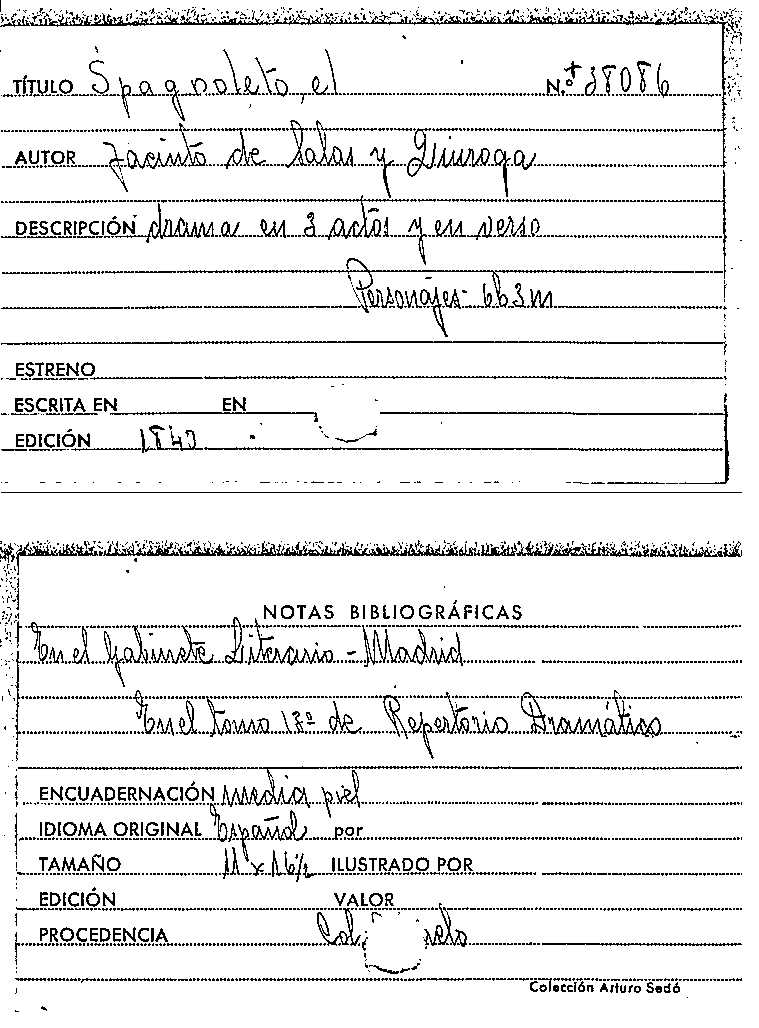 TÍTULO Spagnoleto, el N.º 38086
AUTOR Jacinto de Salas y Quiroga
DESCRIPCIÓN drama en 3 actos y en verso
Personajes- 6h3m
ESTRENO
ESCRITA EN EN
EDICIÓN
NOTAS BIBLIOGRÁFICAS
En el Gabinete Literario - Madrid
En el tomo de Repertorio Dramático
ENCUADERNACIÓN media piel
IDIOMA ORIGINAL Español por
TAMAÑO 11 x 16½ ILUSTRADO POR
EDICIÓN VALOR
PROCEDENCIA
Colección Arturo Sedó